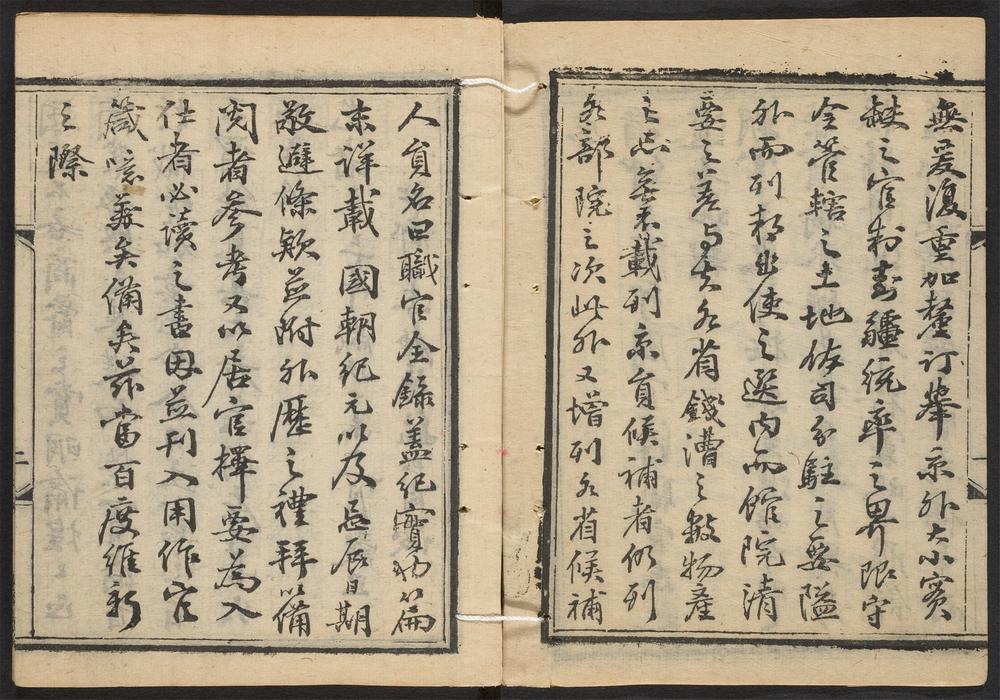 無爰復重加釐訂舉京外大小實
缺之官制封疆統率之界限守
令管轄之土地佐司分駐之要隘
外而列邦出使之選內而館院清
要之差與夫各省錢漕之數物產
之志無不載列京員候補者仍列
各部院之次此外又增列各省候補
人員名曰職官全錄蓋紀實也篇
末詳載 國朝紀元以及 忌辰日期
敬避條款並附外歷之禮拜以備
閱者參考又以居官撮要為入
仕者必讀之書因並刊入用作官
箴噫兹矣備矣茲當百度維新
之際